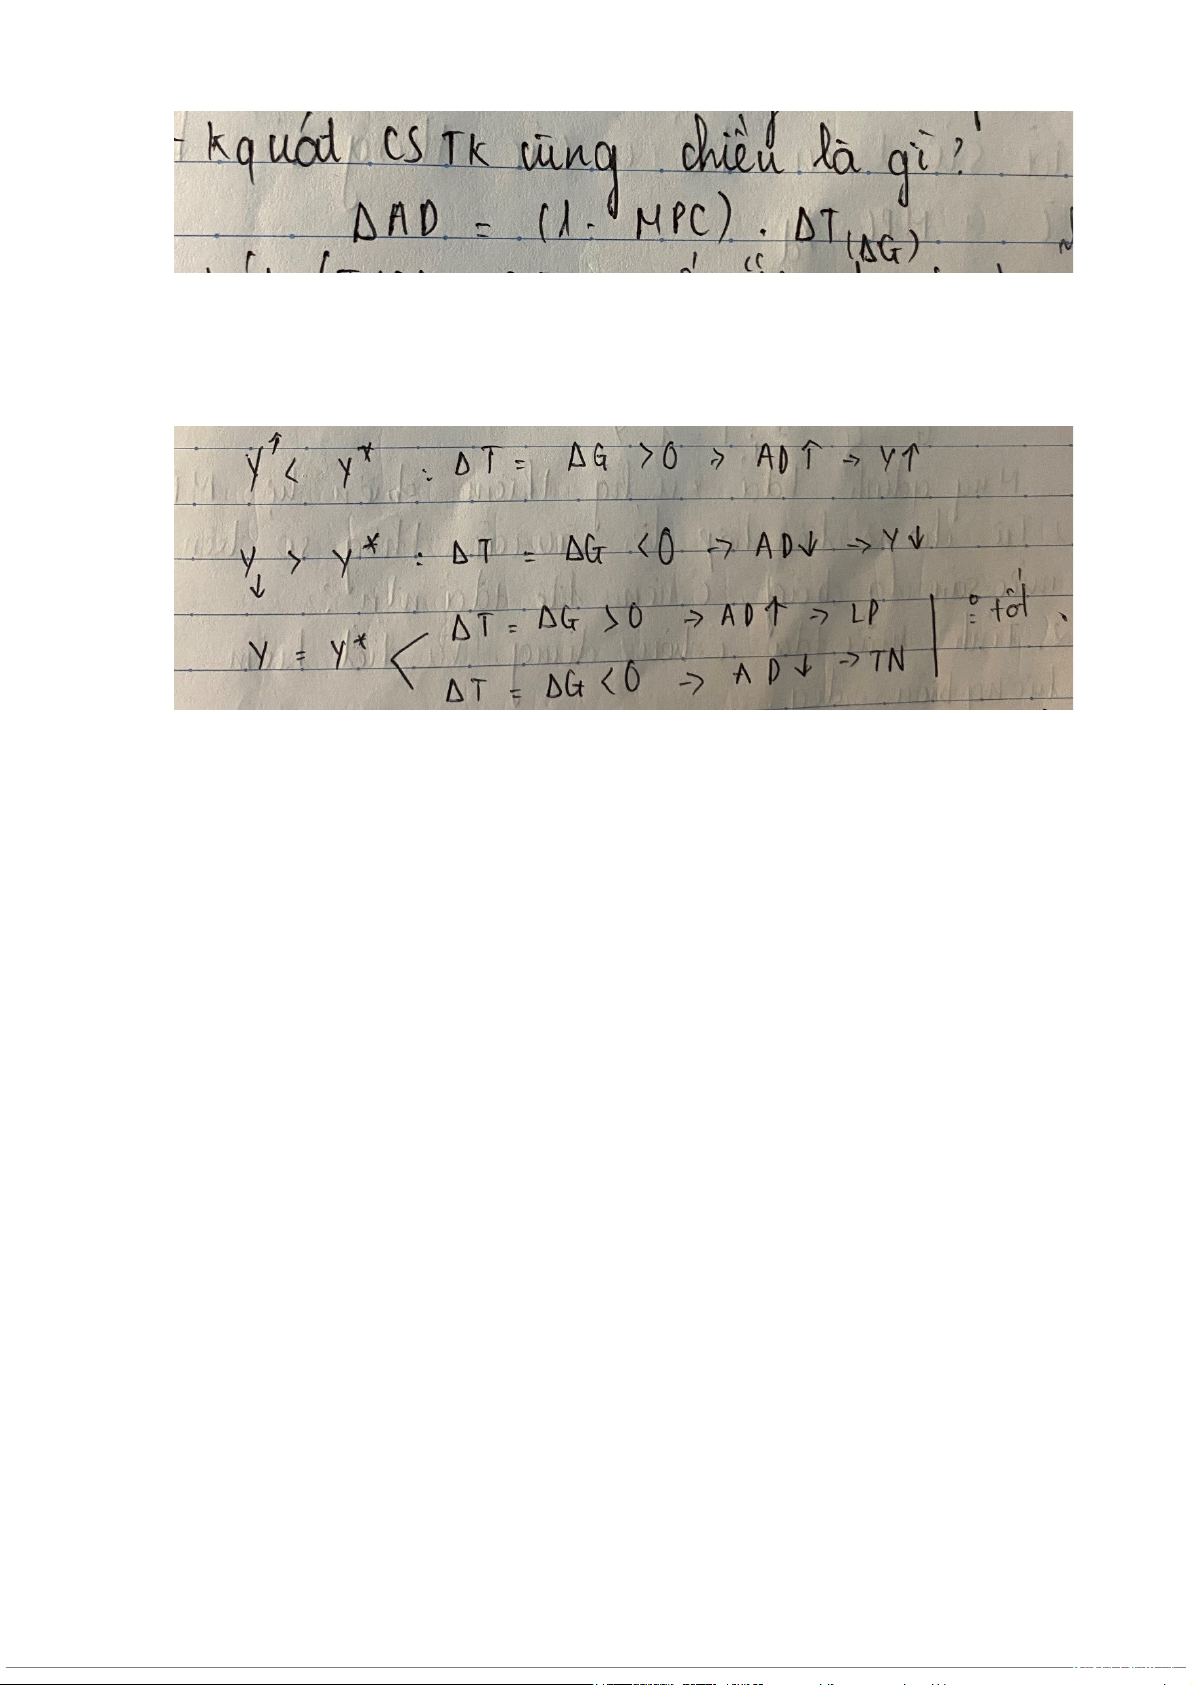 - Kquát CS TK cùng chiều là gì?
ΔAD = (1 - MPC) . ΔT (ΔG)
Y↑ < Y* : ΔT = ΔG > 0 → AD↑ → Y↑
Y↓ > Y* : ΔT = ΔG < 0 → AD↓ → Y↓
ΔT = ΔG > 0 → AD↑ → LP
Y = Y*
ΔT = ΔG < 0 → AD↓ → TN
tốt.